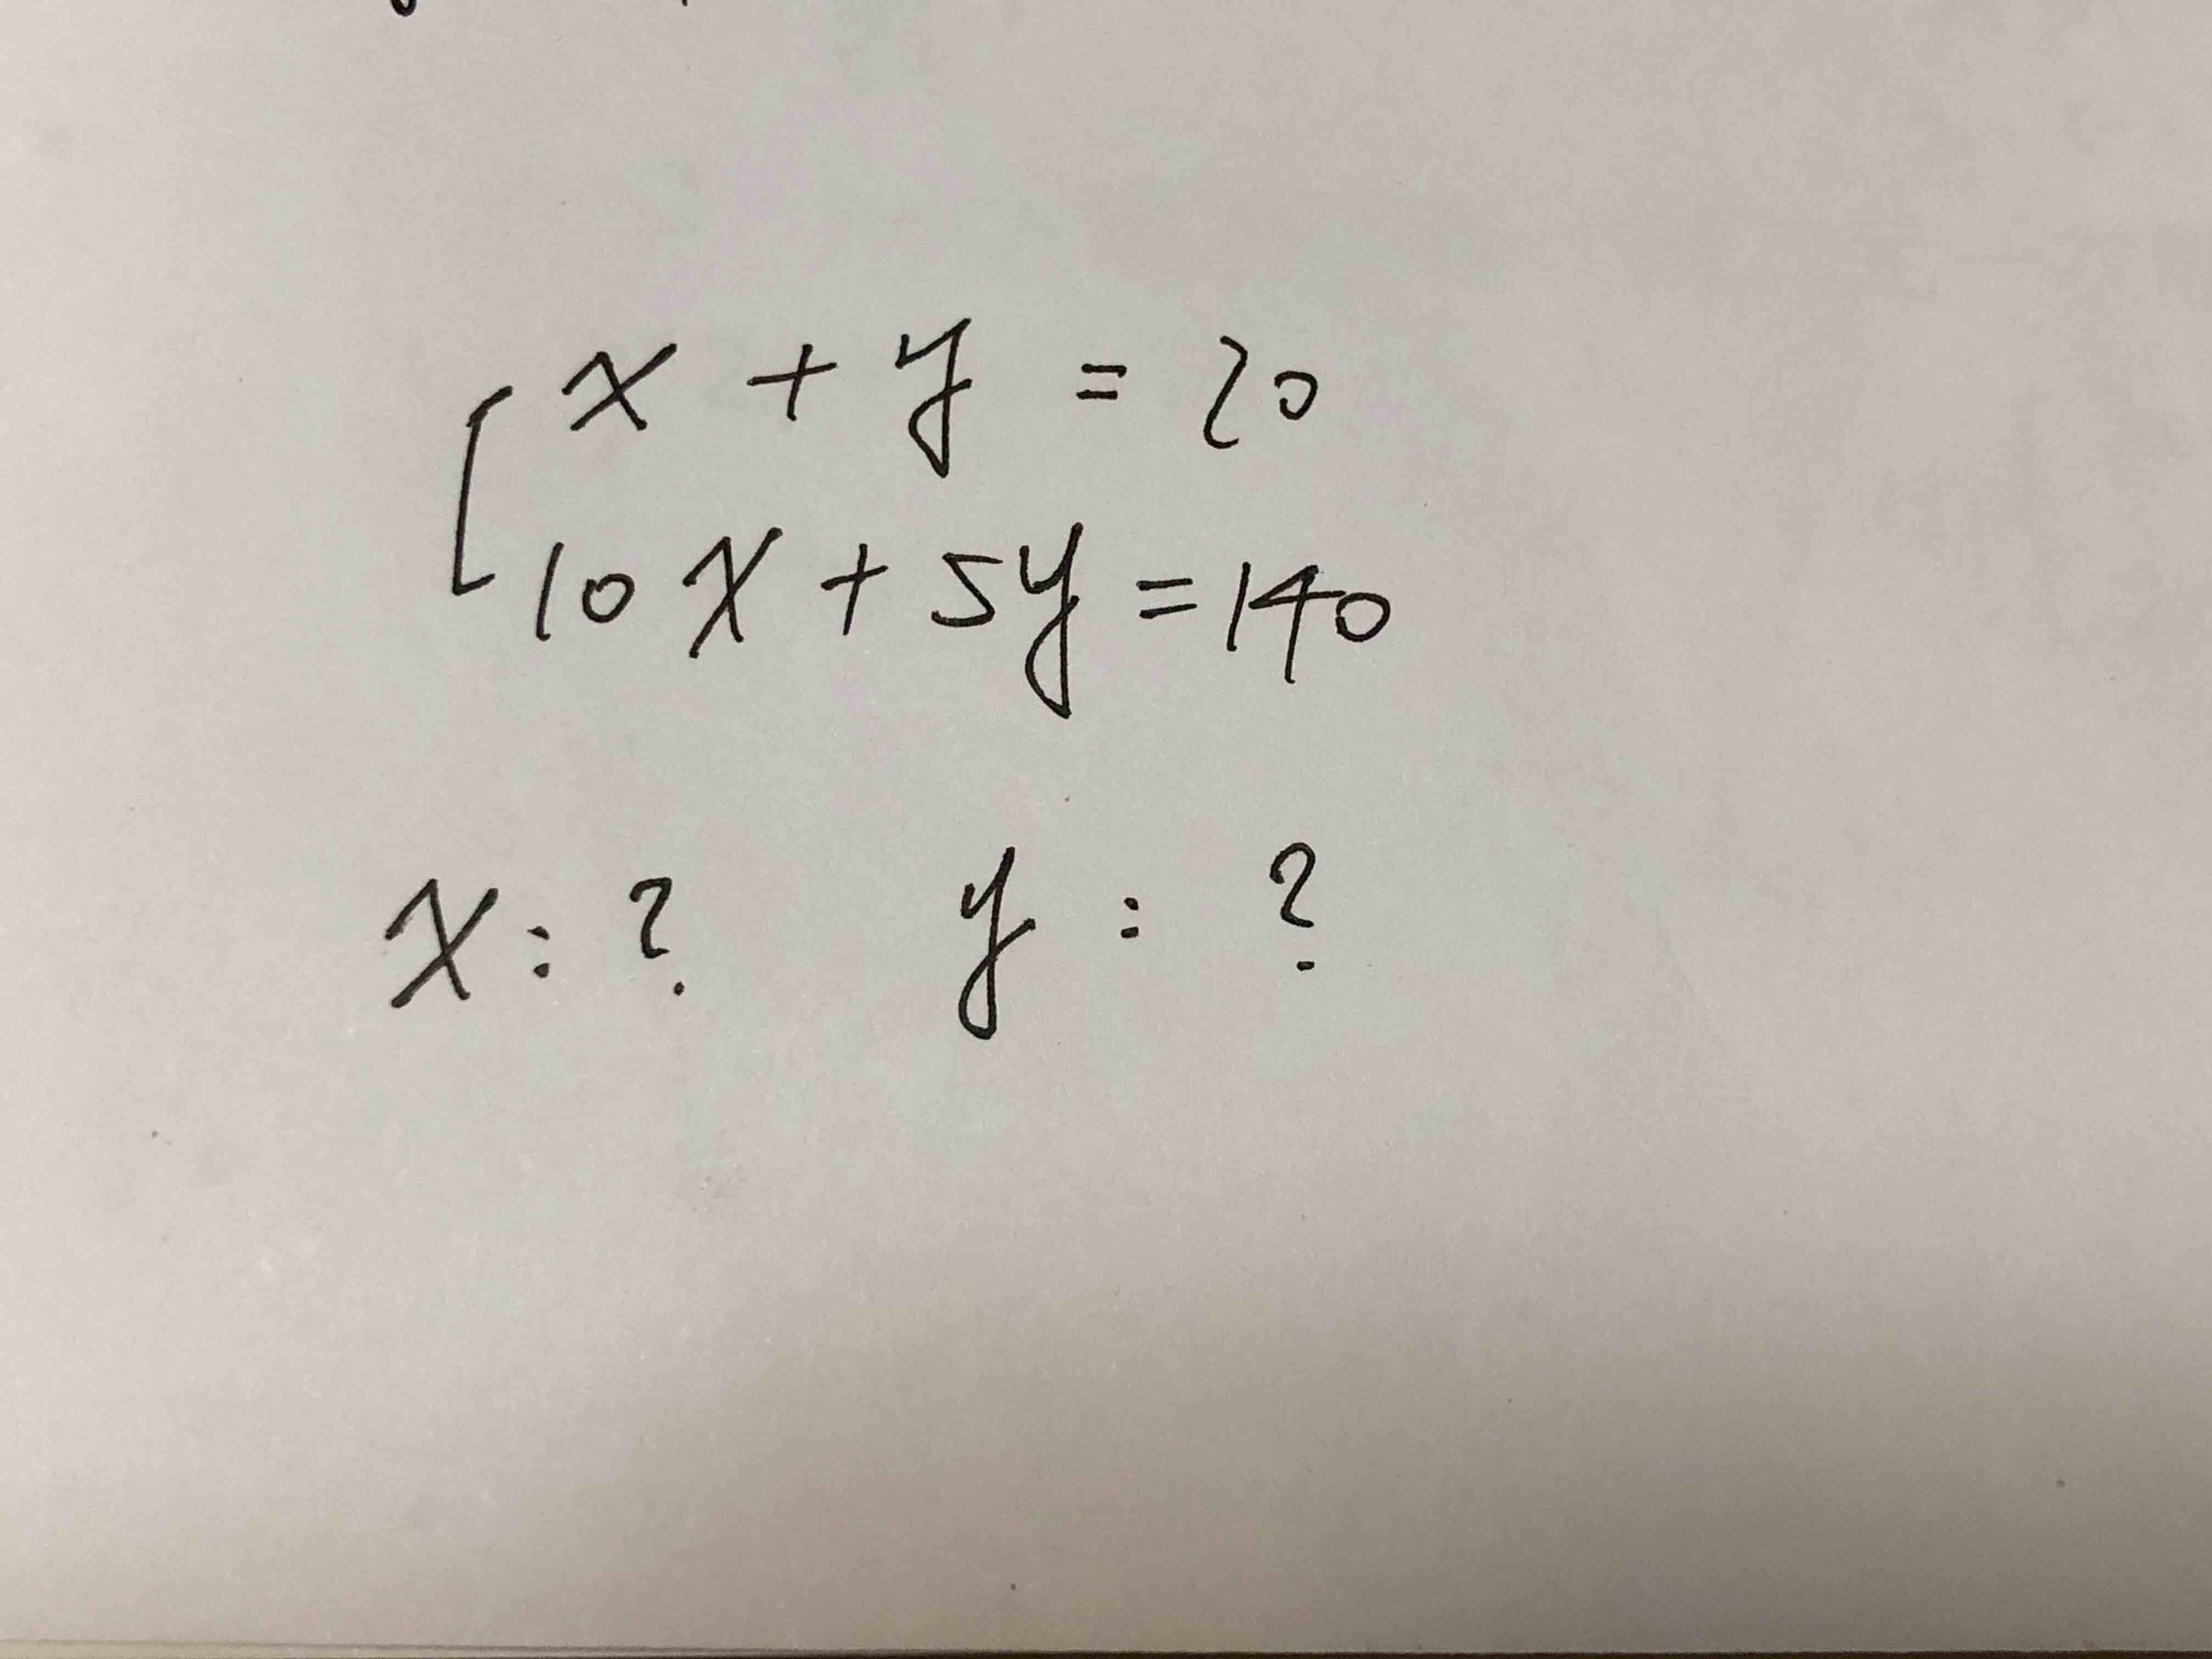 x + y = 20
10x + 5y = 140
x : ? y : ?